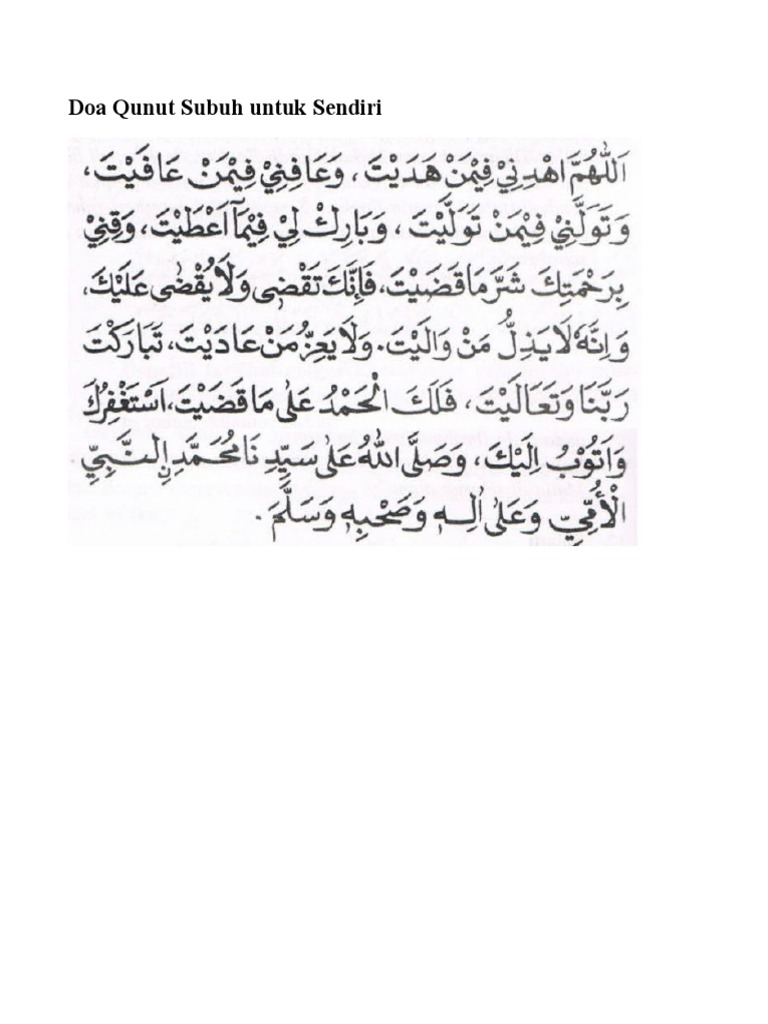 Doa Qunut Subuh untuk Sendiri
اَللّٰهُمَّ اهْدِنِيْ فِيْمَنْ هَدَيْتَ، وَعَافِنِيْ فِيْمَنْ عَافَيْتَ،
وَتَوَلَّنِيْ فِيْمَنْ تَوَلَّيْتَ، وَبَارِكْ لِيْ فِيْمَآ اَعْطَيْتَ، وَقِنِيْ
بِرَحْمَتِكَ شَرَّ مَا قَضَيْتَ، فَاِنَّكَ تَقْضِى وَلَا يُقْضٰى عَلَيْكَ،
وَاِنَّهٗ لَا يَذِلُّ مَنْ وَالَيْتَ. وَلَا يَعِزُّ مَنْ عَادَيْتَ، تَبَارَكْتَ
رَبَّنَا وَتَعَالَيْتَ، فَلَكَ الْحَمْدُ عَلٰى مَا قَضَيْتَ، اَسْتَغْفِرُكَ
وَاَتُوْبُ اِلَيْكَ، وَصَلَّى اللّٰهُ عَلٰى سَيِّدِنَا مُحَمَّدٍ اِلنَّبِيِّ
الْاُمِّيِّ وَعَلٰى اٰلِهٖ وَصَحْبِهٖ وَسَلَّمَ.